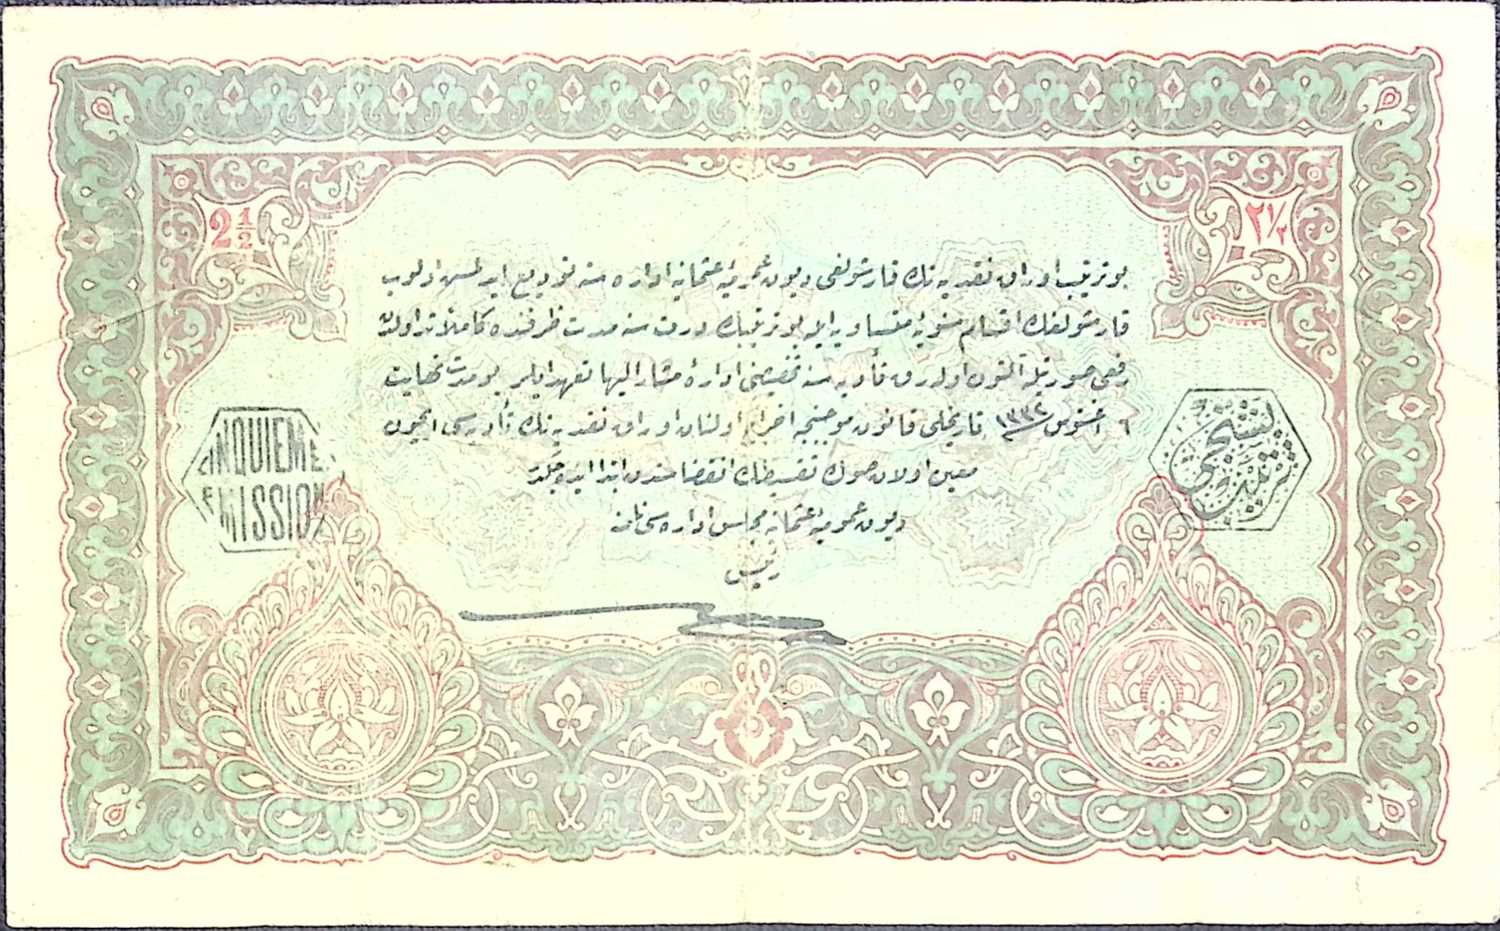 2 1/2
٢ ١/٢
بو ترتیب اوراق نقدیه نك قارشولغی دیون عمومیهٔ عثمانیه اداره سنه تودیع ایدلمش اولوب
قارشولغك اقسام متساویه ایله بو ترتیبك درت سنه مدت ظرفنده كاملاً تداولدن
رفعی صورتیله آلتون اولەرق تأدیه سنه تخصیصنی ادارهٔ مشار الیها تعهد ایلر بو مدت نهایت
٦ اغستوس ١٣٣٢ تاریخلی قانون موجبنجه اخراج اولنان اوراق نقدیه نك تأدیه سی ایچون
معین اولان صوك تقسیطك انقضاسندن ابتدا ایده جكدر
دیون عمومیهٔ عثمانیه مجلس اداره سی نامنه
رئیس
CINQUIEME
EMISSION
بشنجی
ترتیب